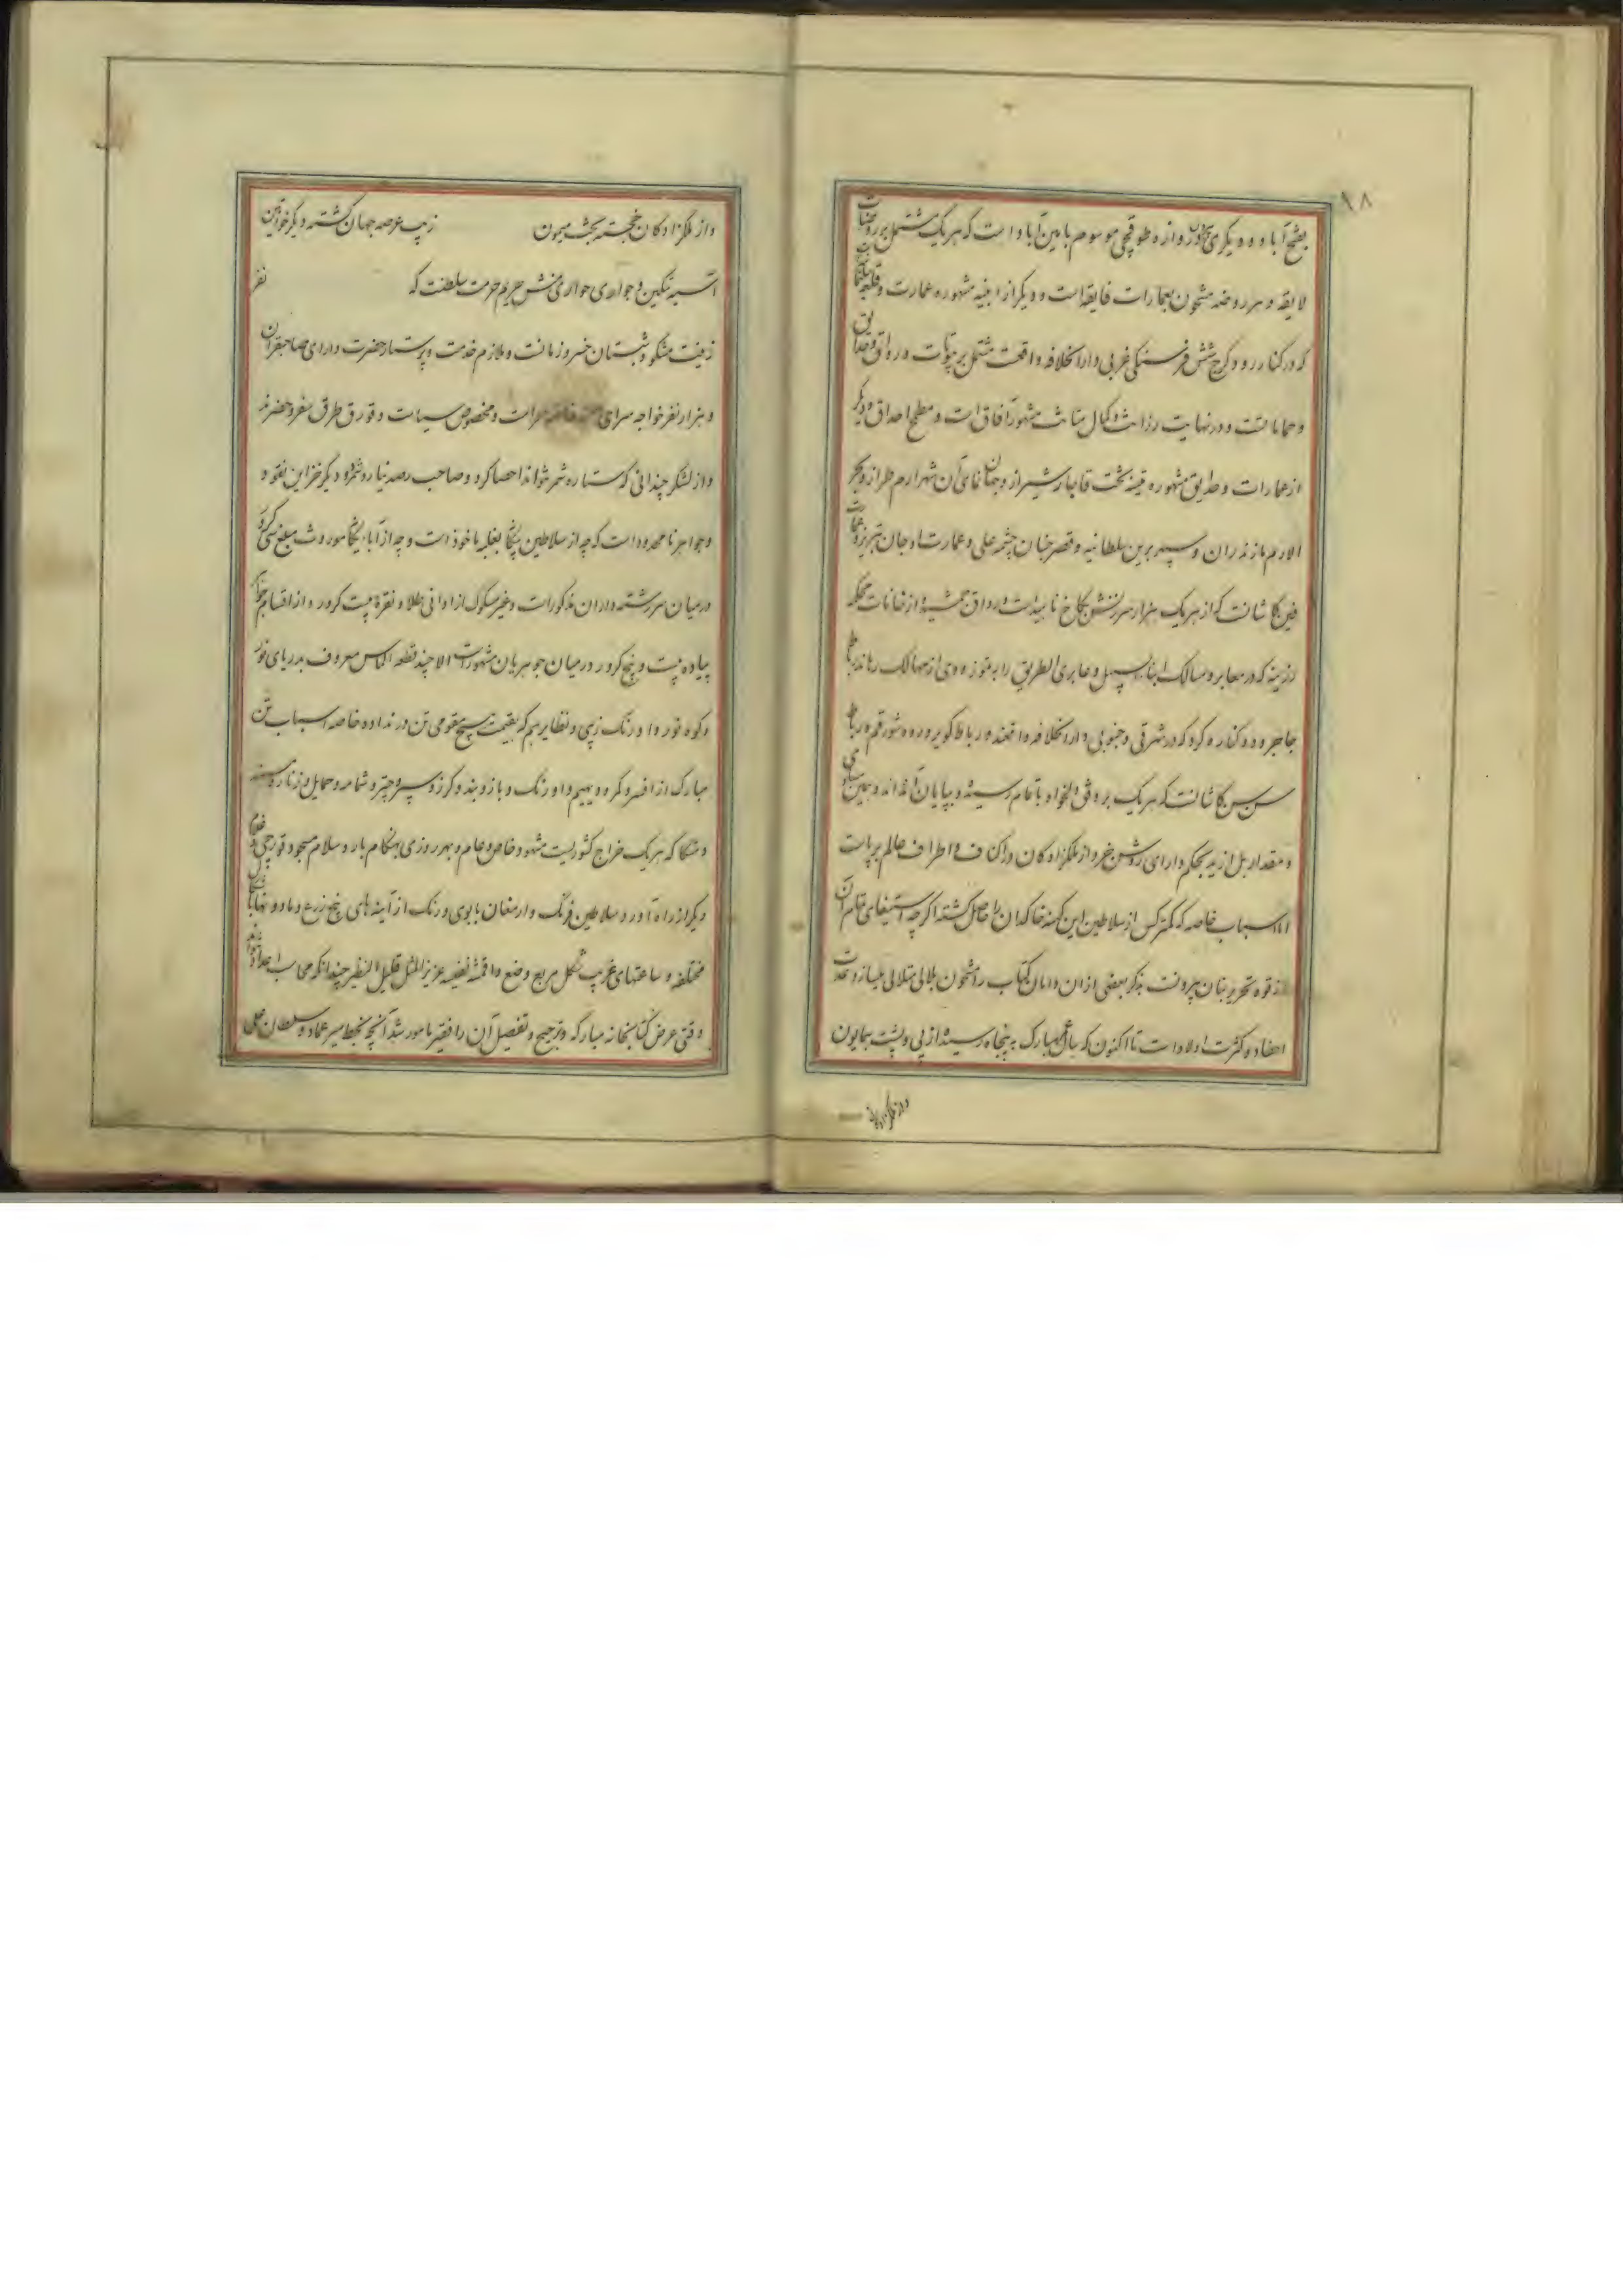 ۹۸
بفتح آباد و دیگری دروازه طوقچی موسوم بامین آباد است که هر یک مشتمل بر روضات
لایقه و هر روضه مشحون بعمارات فایقه است و دیگر از ابنیه مشهوره عمارت و قلعه سلیمانیه
که در کنار رود کرج شش فرسنگی غربی دار الخلافه واقعست مشتمل بر بیوتات و رواق و حدایق
و حماماتست و در نهایت رزانت و کمال متانت مشهور آفاق است و مطمح احداق و دیگر
از عمارات و حدایق مشهوره قینه تخت قاجار شیراز و جهان نمای آن شهر ارم طراز و بحر
الارم مازندران و سپهر برین سلطانیه و قصر جنان چشمه علی و عمارت اوجان تبریز و عمارت
فین کاشانست که از هر یک هزار سرزنش بکاخ ناهید است و رواق جمشید و از خانات محکم
رزینه که در معابر و مسالک ابناء السبیل و عابری الطریق را به متوزه دی از مهالک رهاند رباط
جاجرود و کناره کرد که در شرقی و جنوبی دار الخلافه واقعند و رباط کویر و رود شور قم و رباط
سن سن کاشانست که هر یک بر وفق دلخواه باتمام رسیده و بپایان آمده اند و بهمین سیاق
و مقدار بل ازید بحکم دارای روشن خرد از ملکزادکان در اکناف و اطراف عالم بر پاست
اما اسباب خاصه که کمتر کس از سلاطین این کهنه خاکدان را حاصل کشته اگر چه استیفای تمام آن
از قوه تحریر بنان بیرونست بذکر بعضی از آن دامان کتاب را مشحون بلالی متلالی میسازد
احفاد و کثرت اولاد است تا اکنون که سال عمر مبارک به پنجاه رسیده از پی و پشت همایون
و از ملکزادکان
و از ملکزادکان خجسته بخت میمون زیب عرصه جهان کشته دیگر خواتین
آسیه تمکین و جواری حواری منش حریم حرمت سلطنت که نفر
زینت مشکو و شبستان خسرو زمانست و ملازم خدمت و پرستار حضرت دارای صاحبقران
و هزار نفر خواجه سرای و مخصوص سیاست و قورق طرق سفر و حضرند
و از لشکر چندانی که ستاره شمر نتواند احصا کرد و صاحب رصد نیارد شمرد دیگر خزاین نقود و
و جواهر نامحدود است که چه از سلاطین بغلبه ماخوذ است و چه از آباء موروث مبلغ سی کرور
در میان سررشته داران مذکور است و غیر مسکوک از اوانی طلا و نقره بیست کرور و از اقسام جواهر
پیاده بیست و پنج کرور در میان جوهریان مشهور است الا چند قطعه الماس معروف بدریای نور
و کوه نور و اورنک زیبی و نظایرهم که بقیمت هیچ مقومی تن در نداده خاصه اسباب تن
مبارک از افسر و کمر و دیهیم و اورنک و بازوبند و کرز و سپر و چتر و شمامه و حمایل و زنار
و متکا که هر یک خراج کشوریست مشهود خاص و عام و بهر روزی بهنکام بار و سلام
دیگر از راه آورد سلاطین فرنک و ارمغان با بوی و رنک از آینه های پنج زرع و مادون
مختلفه و ساعتهای غریب شکل مربع وضع و اقمشه نفیسه عزیز المثل قلیل النظیر چندانکه محاسب اعداد
وقتی عرض کتابخانه مبارکه و ترجیح و تفصیل آن را فقیر مامور شد آنچه بخط میر عماد و سلطان علی